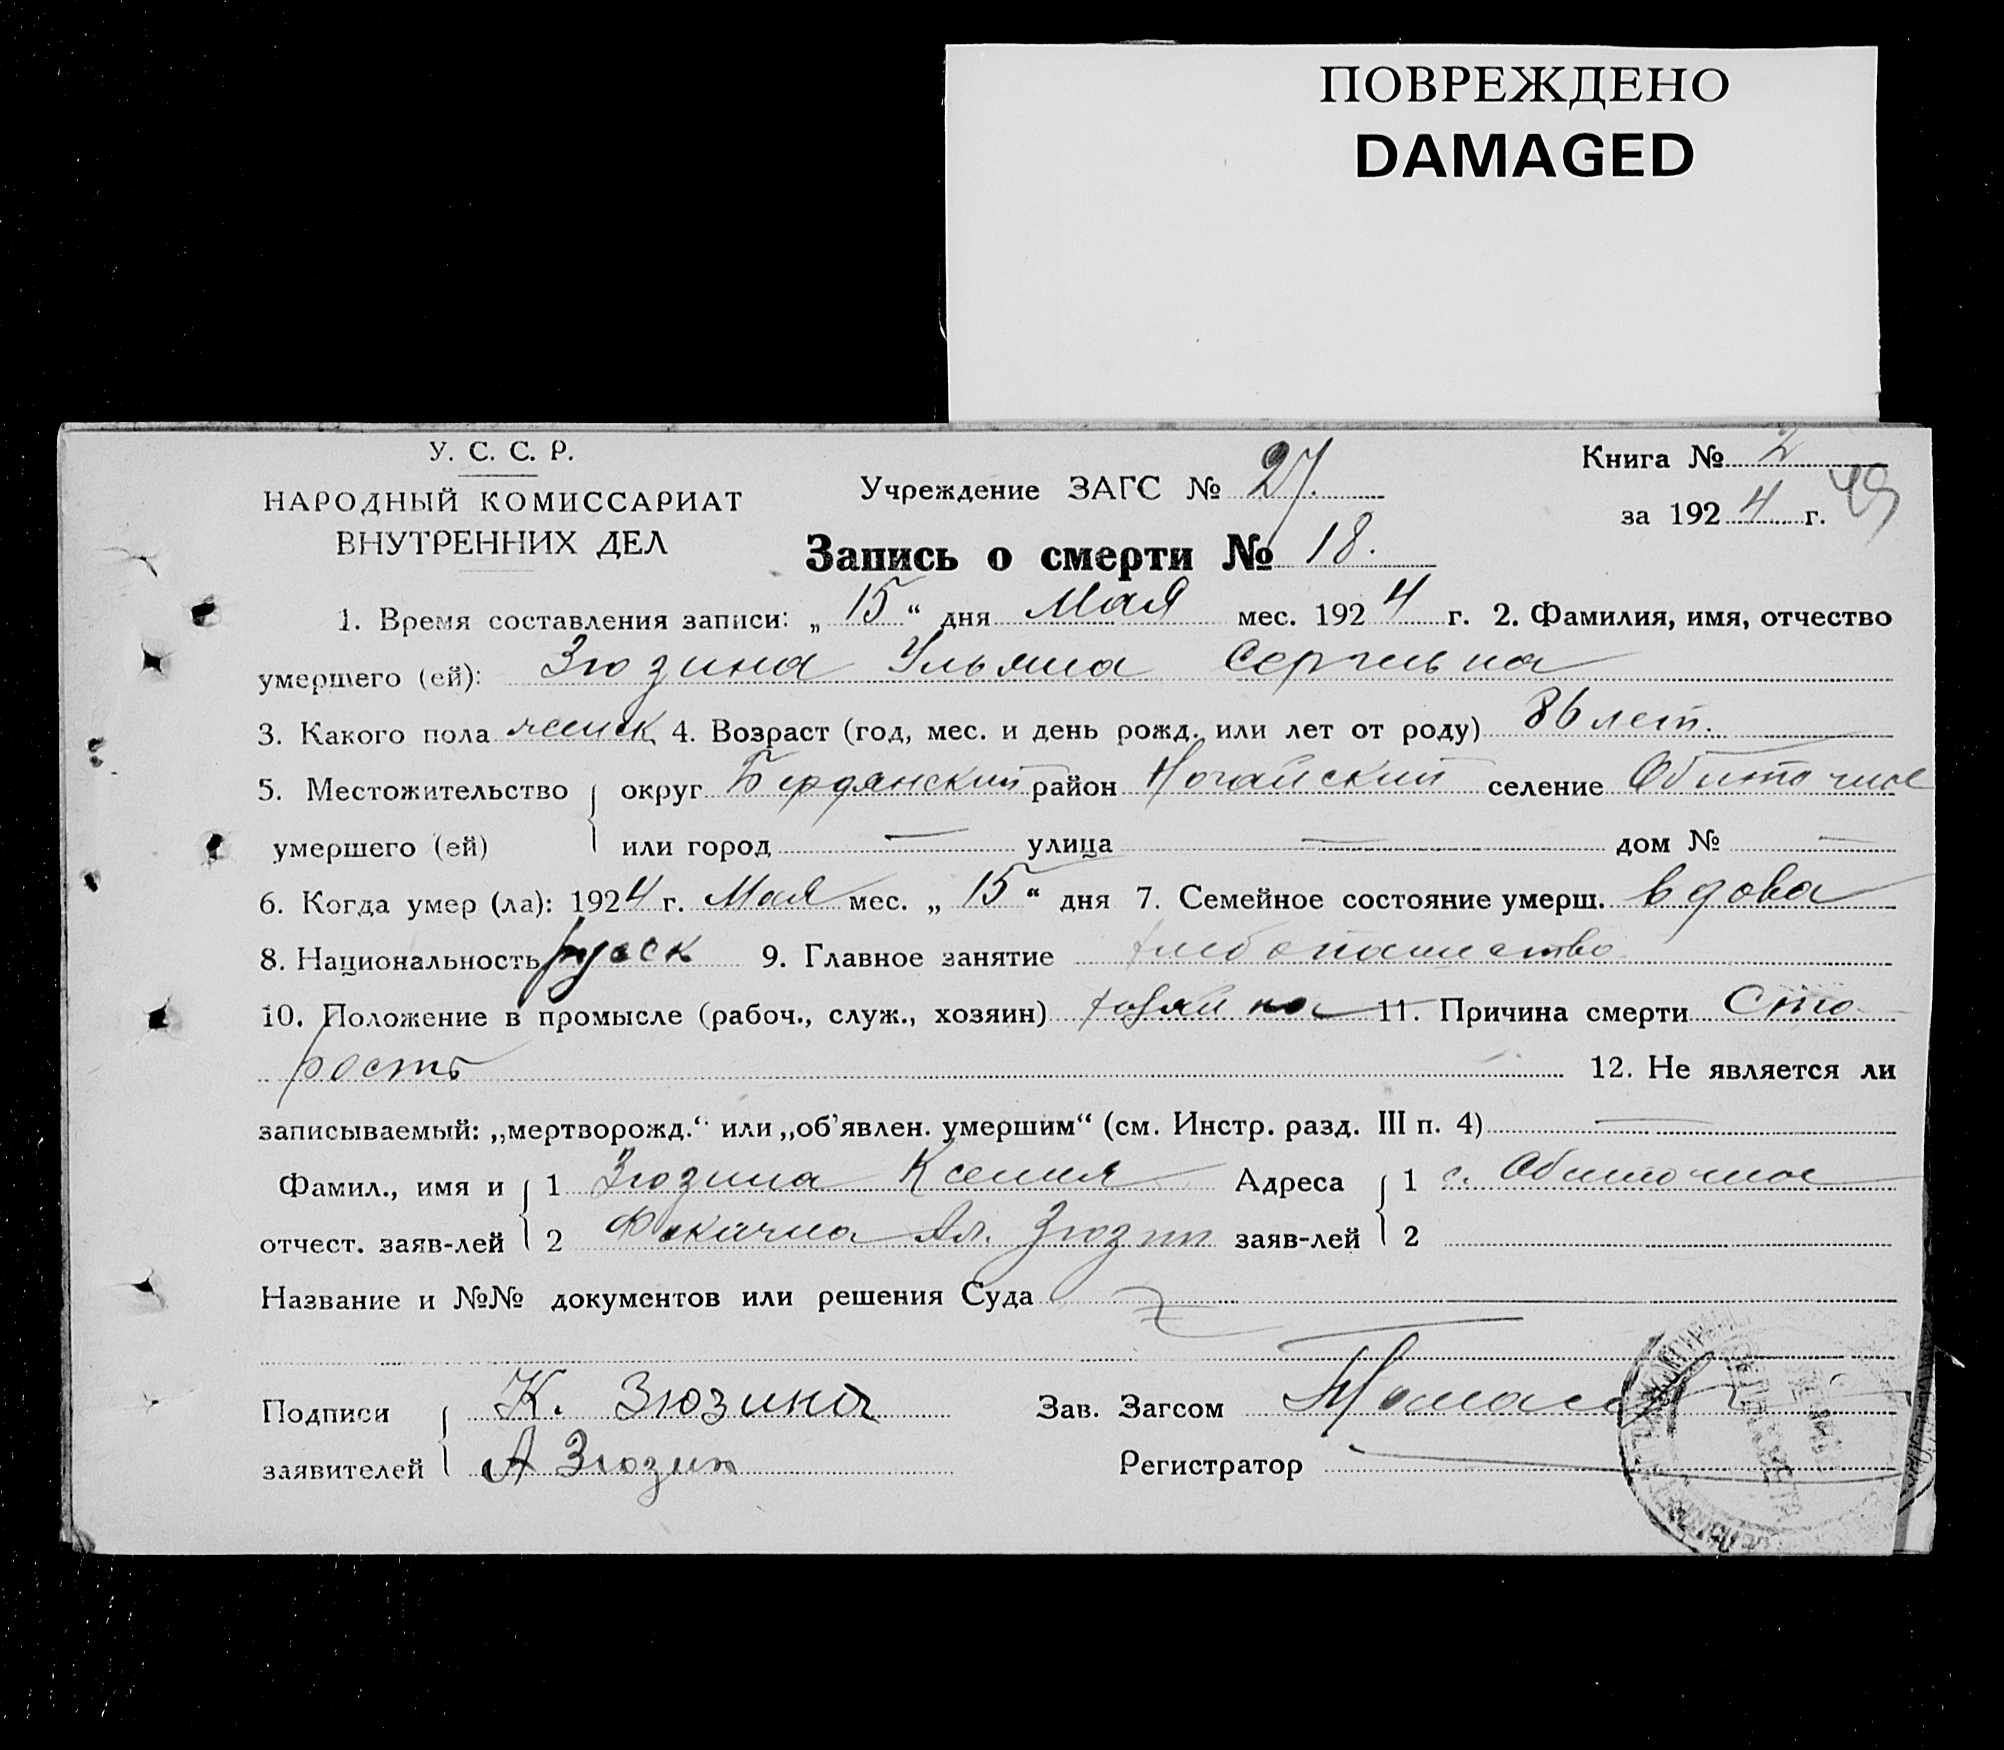 ПОВРЕЖДЕНО
DAMAGED
У. С. С. Р.
НАРОДНЫЙ КОМИССАРИАТ
ВНУТРЕННИХ ДЕЛ
Учреждение ЗАГС № 27.
Книга № 2
за 1924 г. 49
Запись о смерти № 18.
1. Время составления записи: „15“ дня Мая мес. 1924 г. 2. Фамилия, имя, отчество
умершего (ей): Зюзина Ульяна Сергеевна
3. Какого пола женск 4. Возраст (год, мес. и день рожд. или лет от роду) 86 лет.
5. Местожительство округ Бердянский район Ногайский селение Обиточное
умершего (ей) или город — улица — дом № —
6. Когда умер (ла): 1924 г. Мая мес. „15“ дня 7. Семейное состояние умерш. вдова
8. Национальность русск 9. Главное занятие хлебопашество
10. Положение в промысле (рабоч., служ., хозяин) хозяйка 11. Причина смерти Ста-
рость 12. Не является ли
записываемый: „мертворожд.“ или „об'явлен. умершим“ (см. Инстр. разд. III п. 4) —
Фамил., имя и 1 Зюзина Ксения Адреса 1 с. Обиточное
отчест. заяв-лей 2 Ал. Зюзин заяв-лей 2
Название и №№ документов или решения Суда
Подписи К. Зюзина Зав. Загсом
заявителей А Зюзин Регистратор